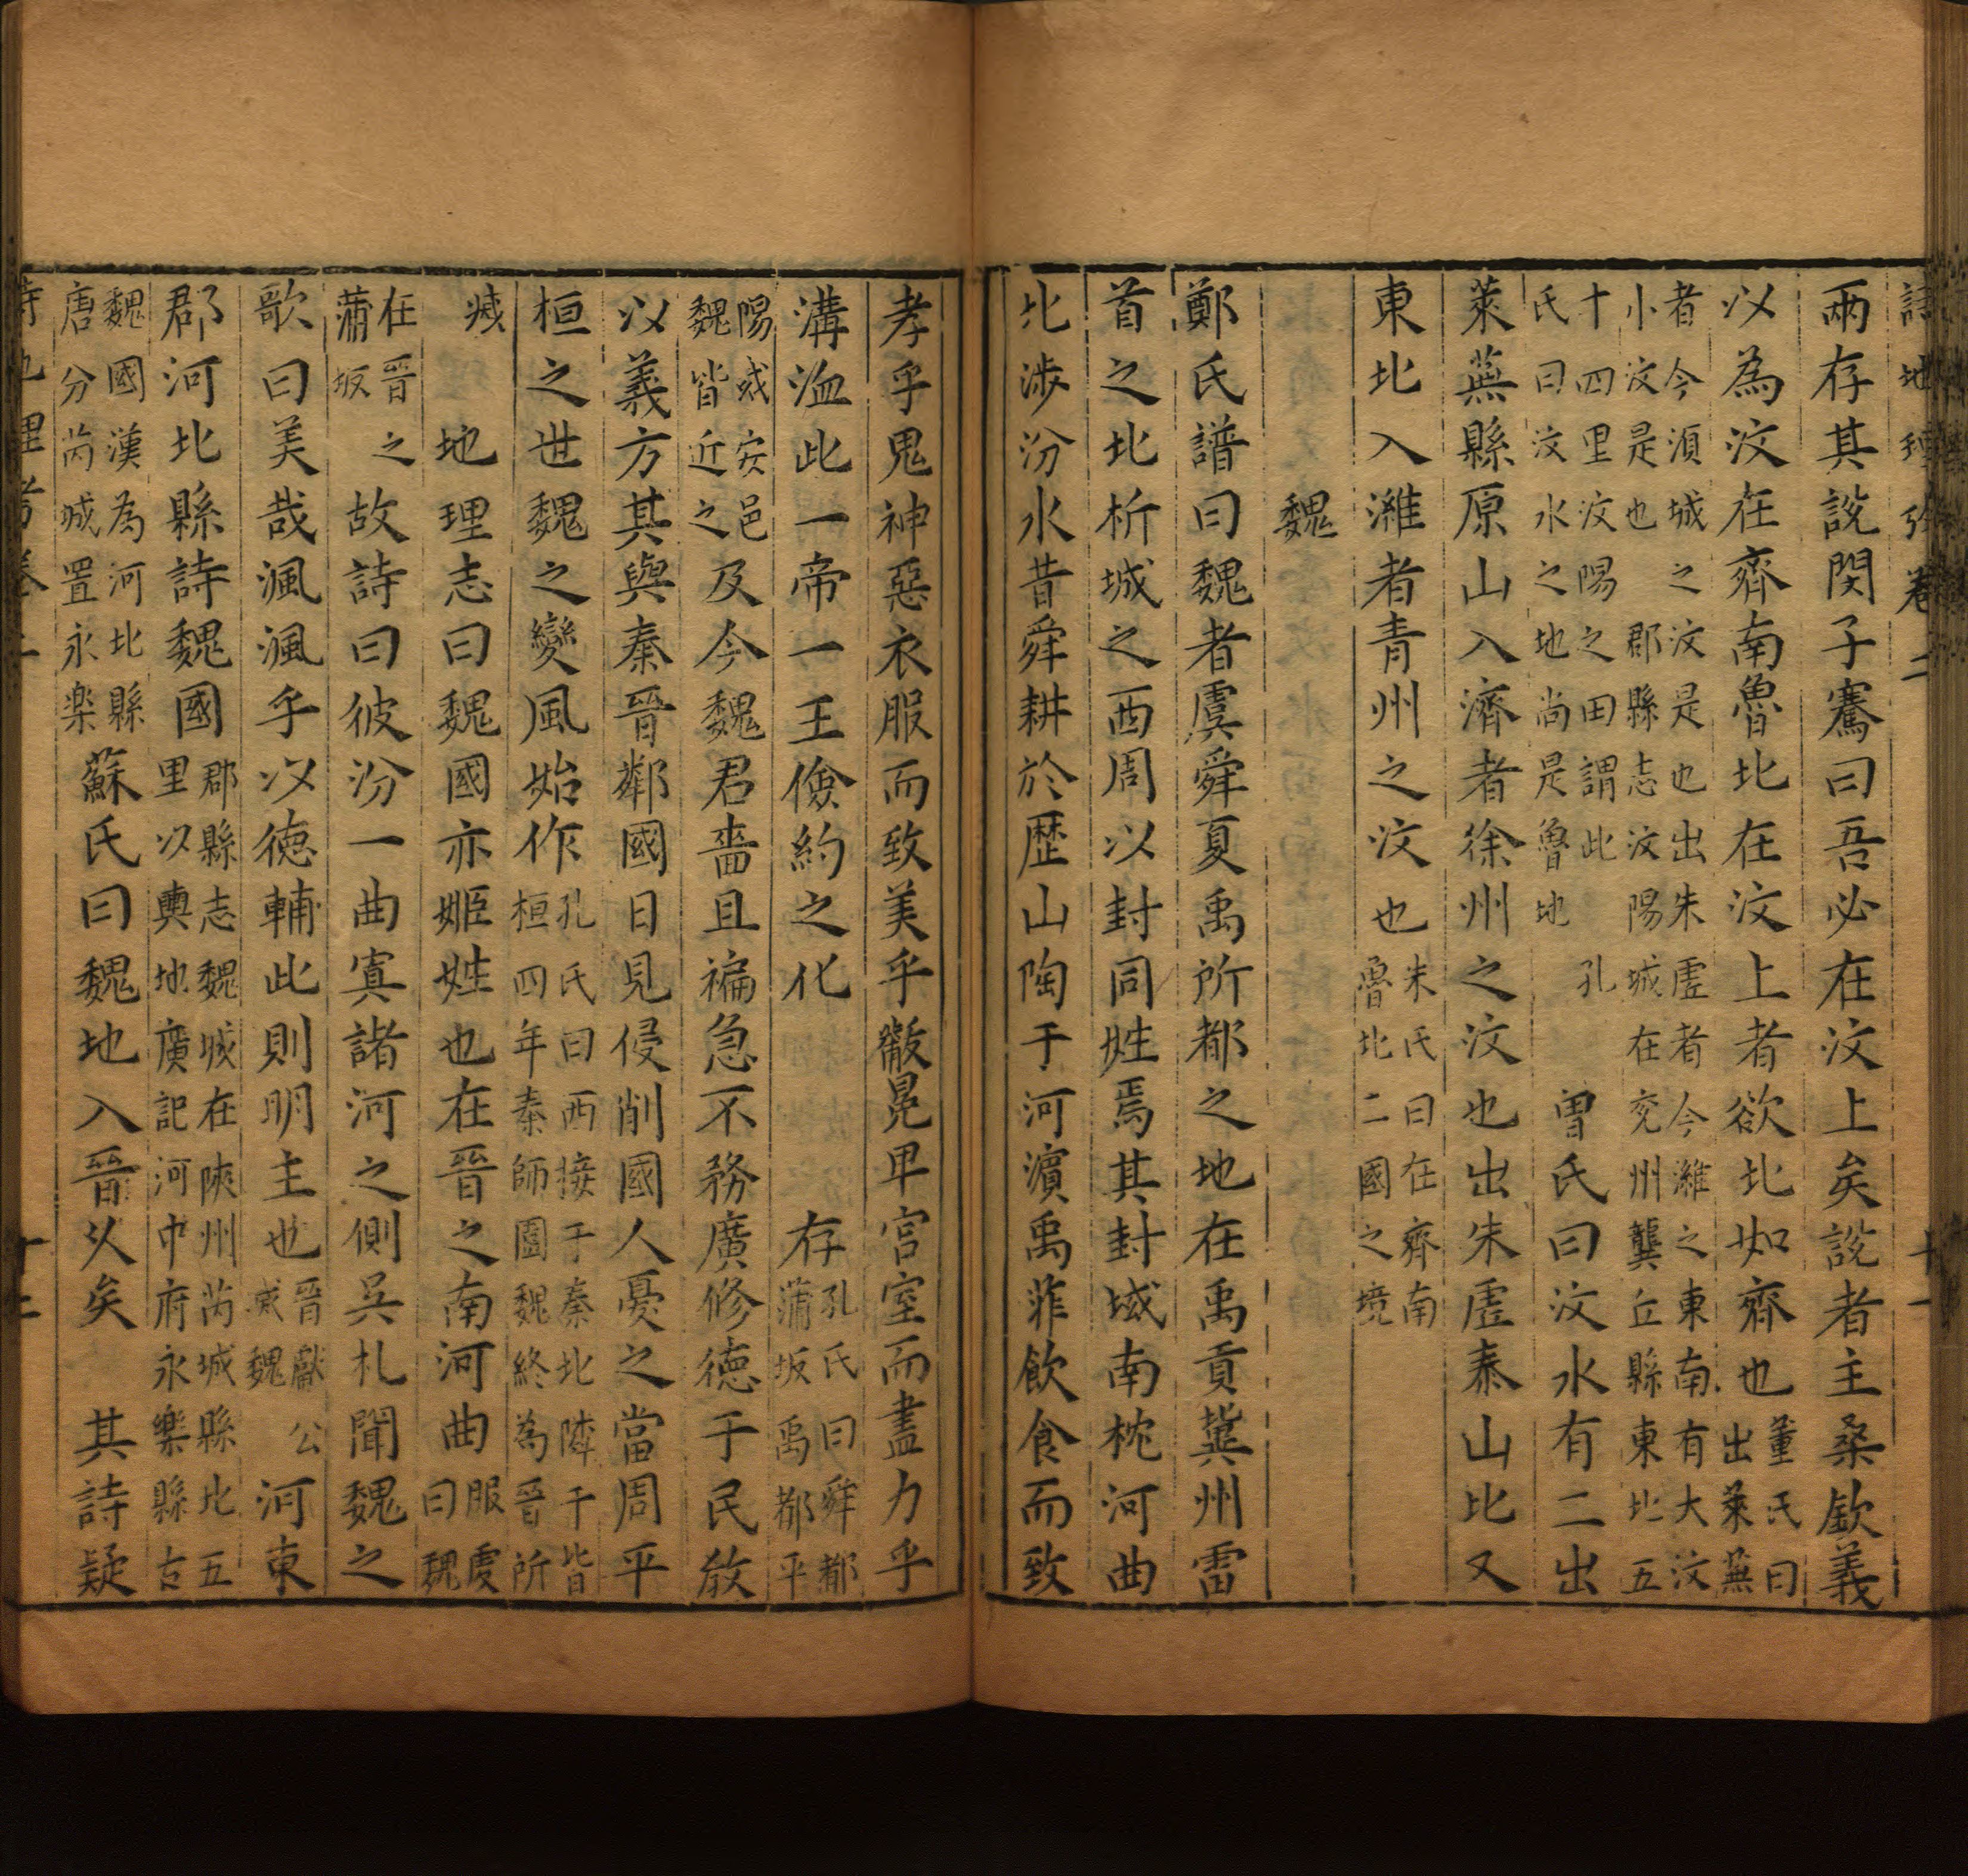 詩地理攷卷二 十一
兩存其說閔子騫曰吾必在汶上矣說者主桑欽義
以為汶在齊南魯北在汶上者欲北如齊也董氏曰出萊蕪
者今湏城之汶是也出朱虛者今濰之東南有大汶小汶是也郡縣志汶陽城在兗州龔丘縣東北五
十四里汶陽之田謂此 孔氏曰汶水之地尚是魯地 曾氏曰汶水有二出
萊蕪縣原山入濟者徐州之汶也出朱虛泰山北又
東北入濰者青州之汶也朱氏曰在齊南魯北二國之境
魏
鄭氏譜曰魏者虞舜夏禹所都之地在禹貢冀州雷
首之北析城之西周以封同姓焉其封域南枕河曲
北涉汾水昔舜耕於歷山陶于河濱禹菲飲食而致
孝乎鬼神惡衣服而致美乎黻冕卑宮室而盡力乎
溝洫此一帝一王儉約之化 存孔氏曰舜都蒲坂禹都平
陽或安邑魏皆近之及今魏君嗇且褊急不務廣修德于民敎
以義方其與秦晉鄰國日見侵削國人憂之當周平
桓之世魏之變風始作孔氏曰西接于秦北隣于皆桓四年秦師圍魏終為晉所
滅 地理志曰魏國亦姬姓也在晉之南河曲服虔曰魏
在晉之蒲坂 故詩曰彼汾一曲寘諸河之側吳札聞魏之
歌曰美哉渢渢乎以德輔此則明主也晉獻公滅魏 河東
郡河北縣詩魏國郡縣志魏城在陝州芮城縣北五里以輿地廣記河中府永樂縣古
魏國漢為河北縣唐分芮城置永楽 蘇氏曰魏地入晉乆矣 其詩疑
詩地理考卷二 十二